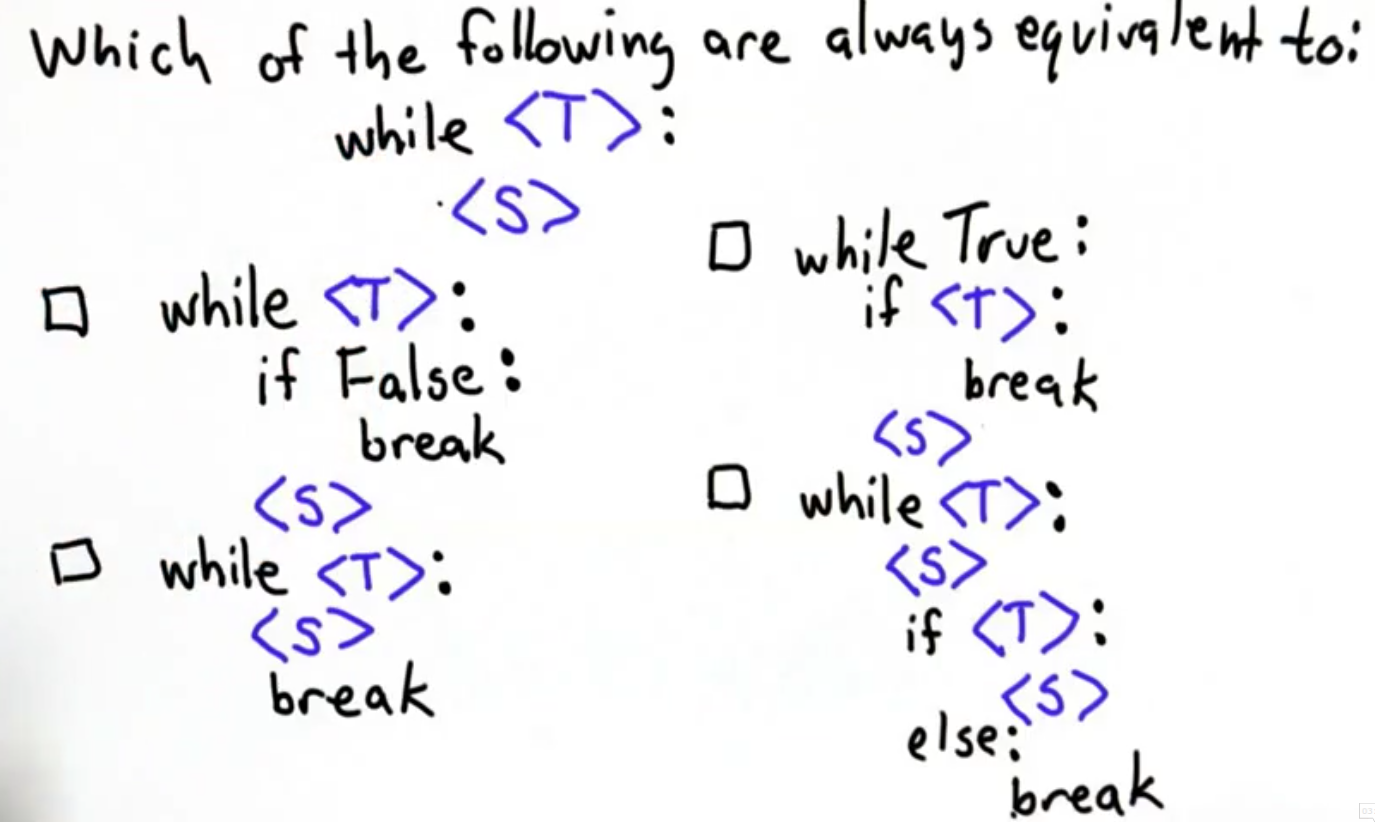 Which of the following are always equivalent to:
while <T>:
<S>
while <T>:
if False:
break
<S>
while <T>:
<S>
break
while True:
if <T>:
break
<S>
while <T>:
<S>
if <T>:
<S>
else:
break